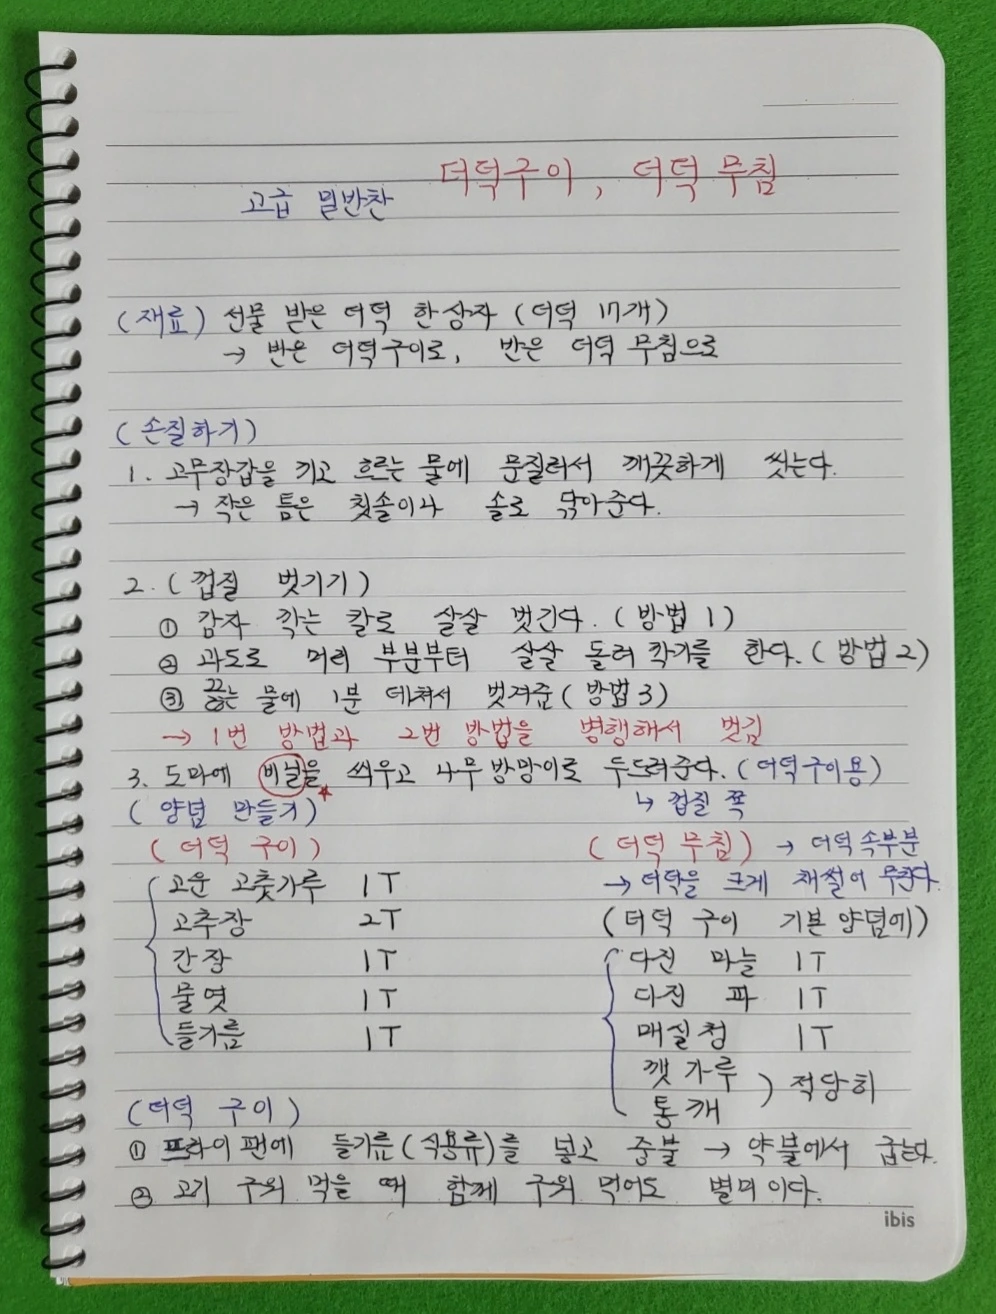 더덕구이, 더덕 무침
고급 밑반찬
(재료) 선물 받은 더덕 한상자 (더덕 17개)
→ 반은 더덕구이로, 반은 더덕 무침으로
(손질하기)
1. 고무장갑을 끼고 흐르는 물에 문질러서 깨끗하게 씻는다.
→ 작은 틈은 칫솔이나 솔로 닦아준다.
2. (껍질 벗기기)
① 감자 깍는 칼로 살살 벗긴다. (방법 1)
② 과도로 머리 부분부터 살살 돌려 깍기를 한다. (방법 2)
③ 끓는 물에 1분 데쳐서 벗겨줌 (방법 3)
→ 1번 방법과 2번 방법을 병행해서 벗김
3. 도마에 비닐을 씌우고 나무 방망이로 두드려준다. (더덕구이용)
↳ 껍질 쪽
(양념 만들기)
(더덕 구이)
고운 고춧가루 1T
고추장 2T
간장 1T
물엿 1T
들기름 1T
(더덕 무침) → 더덕 속부분
→ 더덕을 크게 채썰어 무친다.
(더덕 구이 기본 양념에)
다진 마늘 1T
다진 파 1T
매실청 1T
깻가루
통깨 ) 적당히
(더덕 구이)
① 프라이팬에 들기름(식용류)를 넣고 중불 → 약불에서 굽는다.
② 고기 구워 먹을 때 함께 구워 먹어도 별미이다.
ibis